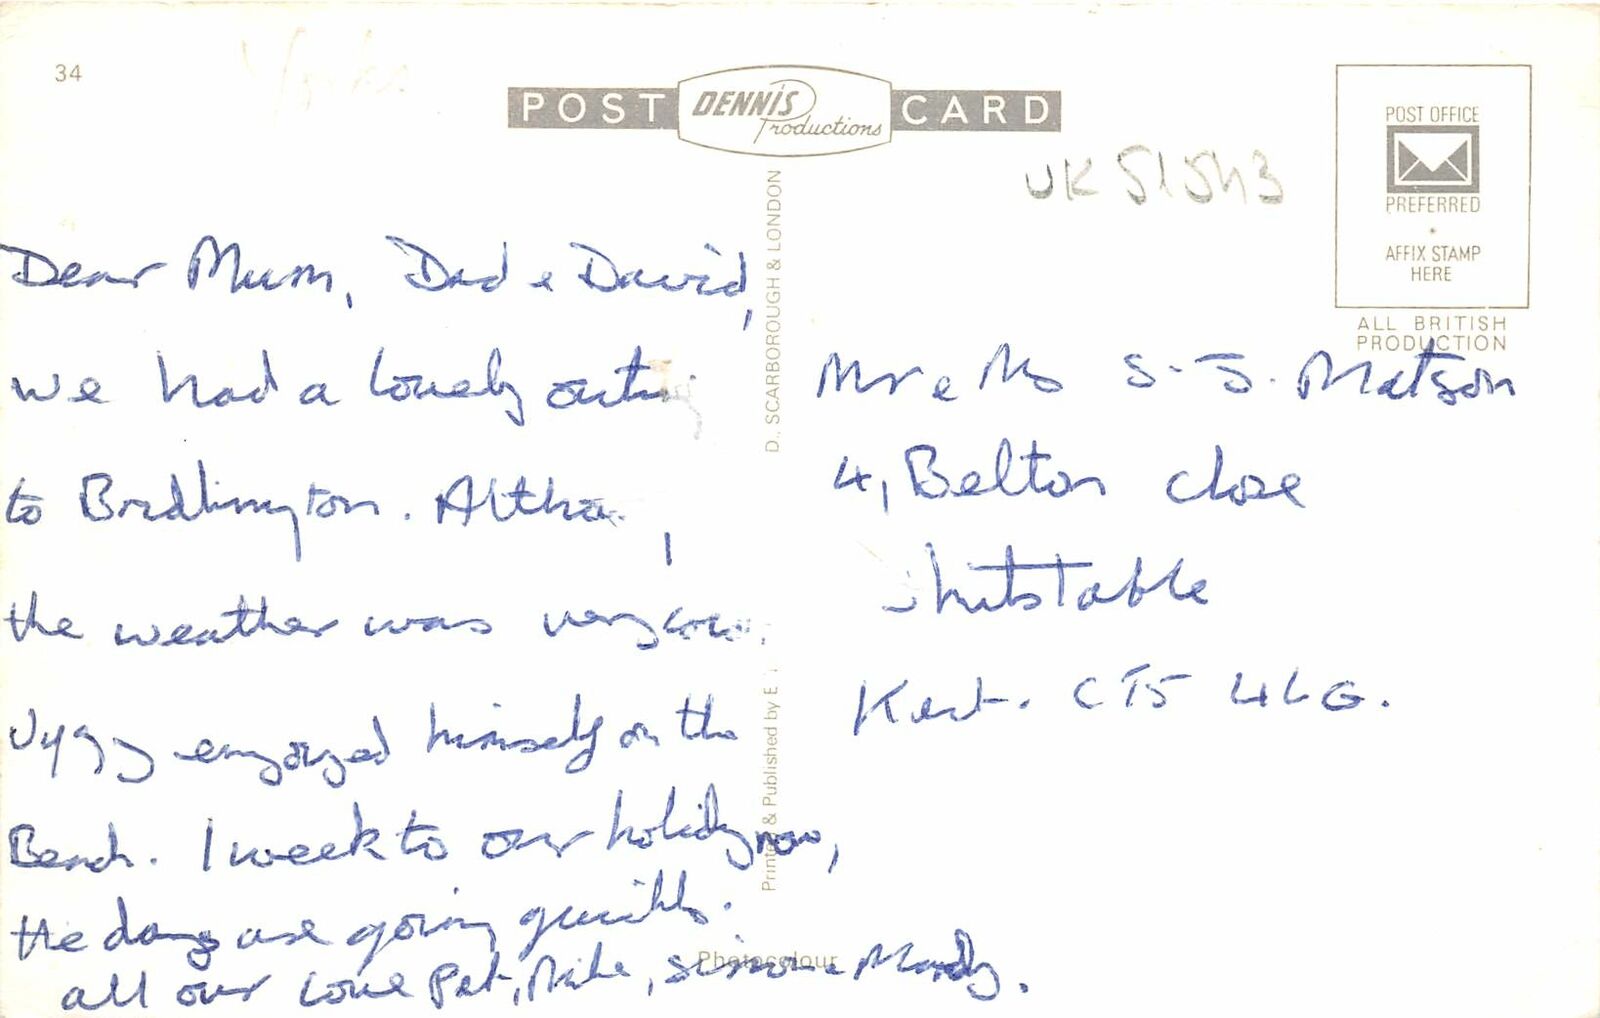 34
Yorks
POST DENNIS Productions CARD
UK 51543
POST OFFICE
PREFERRED
AFFIX STAMP
HERE
ALL BRITISH
PRODUCTION
D., SCARBOROUGH & LONDON
Printed & Published by E
Photocolour
Dear Mum, Dad & David,
we had a lovely outing
to Bridlington. Altho,
the weather was very
enjoyed himself on the
Beach. 1 week to our holiday now,
the days are going quickly.
all our love Pat, Mike, Simon & Mandy.
Mr & Mrs S. J. Matson
4, Belton close
whitstable
Kent. CT5 4LG.